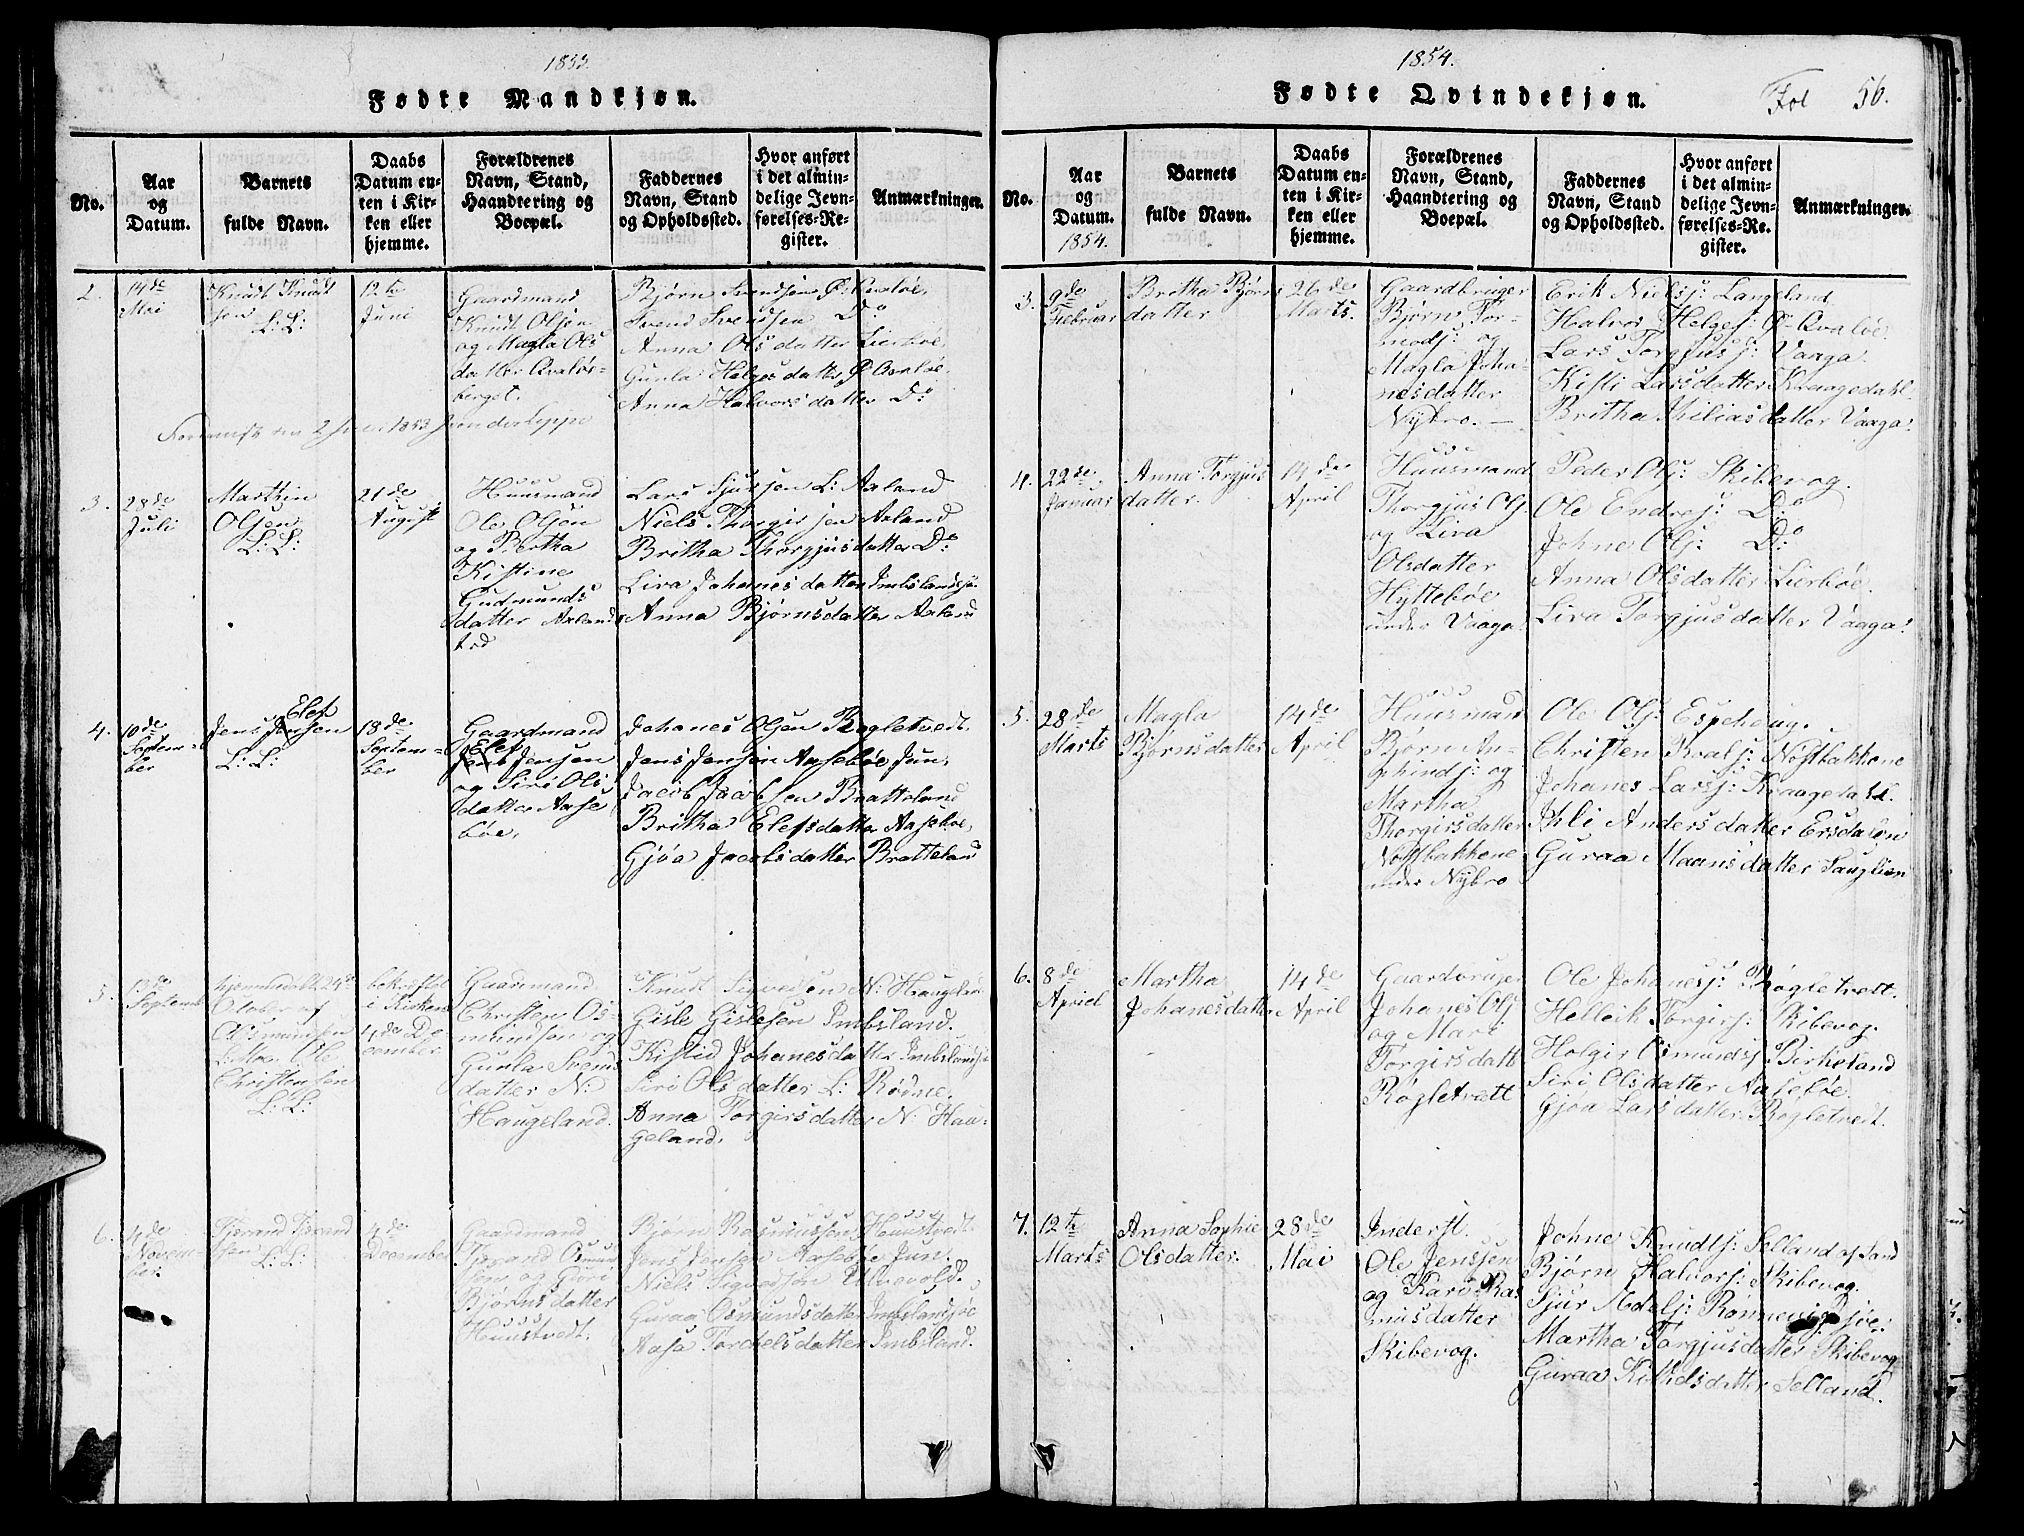 1853.
Fødte Mandkjøn.
No.
Aar
og
Datum.
Barnets
fulde Navn.
Daabs
Datum en-
ten i Kir-
ken eller
hjemme.
Forældrenes
Navn, Stand,
Haandtering og
Boepæl.
Faddernes
Navn, Stand
og Opholdssted.
Hvor anført
i det almin-
delige Jevn-
førelses-Re-
gister.
Anmærkninger.
2.
14de
Mai
Knudt Knudt
sen
L: L:
12te
Juni
Gaardmand
Knudt Olsen
og Magla Ols
datter Qvaløs-
berget.
Bjørn Svendsen Ø: Qvaløe,
Svend Svendsen Do
Anna Olsdatter Lierbøe
Gunla Helgesdatter Ø Qvaløe
Anna Halvorsdatter Do
3.
28de
Juli
Marthin
Olsen
L: L:
21de
August
Huusmand
Ole Olsen
og Bertha
Kistine
Gudmunds
datter Axland
Lars Sjursen L: Axland
Niels Thorgirsen Axland
Britha Thorgjusdatter Do
Liva Johanesdatter Imbslandsjøe
Anna Bjørnsdatter Axland
4.
10de
Septem-
ber
Elef
Jens Jensen
L: L:
18de
Septem-
ber
Gaardmand
Elef
Jens Jensen
og Siri Ols
datter Aase
bøe,
Johanes Olsen Røgletvedt.
Jens Jensen Aasebøe Jun,
Jacob Jacobsen Bratteland
Britha Elefsdatter Aasebøe,
Gjøa Jacobsdatter Bratteland
5.
13de
Septemb
hjemmedøbt 24de
Octobr af
Ole
Christensen
L: L:
bekræftet
i Kirken
4de De
cember
Gaardmand
Christen Os-
mundsen og
Gunla Svens
datter N:
Haugeland.
Knudt Sigvedsen N: Haugeland
Gisle Gislesen Imbsland.
Kistid Johanesdatter Imbslandsjø
Siri Olsdatter L: Rødne.
Anna Torgirsdatter N: Hau-
geland.
6.
4de
Novem-
ber.
Tjerand Tjerand
sen
L: L:
4de
December
Gaardmand
Tjerand Osmund
sen og Gjøri
Bjørnsdatter
Huustvedt.
Bjørn Rasmussen Huustvedt
Jens Jensen Aasebøe Jun.
Niels Sigvedsen Ulvevold.
Guraa Osmundsdatter Imbslandsjøe
Aasa Torchelsdatter Imbsland.
1854.
Fødte Qvindekjøn.
Fol 56.
No.
Aar
og
Datum.
1854.
Barnets
fulde Navn.
Daabs
Datum en-
ten i Kir-
ken eller
hjemme.
Forældrenes
Navn, Stand,
Haandtering og
Boepæl.
Faddernes
Navn, Stand
og Opholdssted.
Hvor anført
i det almin-
delige Jevn-
førelses-Re-
gister.
Anmærkninger.
3.
9de
Februar
Britha Bjørns
datter
26de
Marts.
Gaardbruger
Bjørn Tor-
mods: og
Magla Joha-
nesdatter
Nybro.
Erik Niels: Langeland
Halvor Helges: Ø- Qvaløe.
Lars Torgjus: Vaaga.
Kisti Larsdatter Kraagedahl.
Britha Thiliasdatter Vaaga.
4.
22de
Januar
Anna Torgjus
datter.
14de
April
Huusmand
Thorgjus Ols
og Liva
Olsdatter
Hyttebøe
under Vaaga.
Peder Ols: Skibevog.
Ole Endres: Do
Johne Ols: Do
Anna Olsdatter Lierbøe.
Liva Torgjusdatter Vaaga.
5.
28de
Marts
Magla
Bjørnsdatter
14de
April
Huusmand
Bjørn An-
phinds: og
Martha
Thorgirsdatter
Nøstbakkene
under Nybro
Ole Ols: Espehoug.
Christen Roals: Nøstbakkene
Johanes Lars: Kraagedahl.
Thli Andersdatter Ersdalen
Guraa Maansdatter Sauglien
6.
8de
April
Martha
Johanesdatter
14de
April
Gaardbruger
Johanes Ols
og Mari
Torgirsdatt
Røgletvett
Ole Johanes: Røgletvett.
Helleik Torgirs: Skibevog.
Holgir Osmunds Birkeland
Siri Olsdatter Aasebøe.
Gjøa Larsdatter Røgletvedt.
7.
12te
Marts
Anna Sophie
Olsdatter.
28de
Mai
Inderst.
Ole Jenssen
og Kari Ras
musdatter
Skibevog.
Johne Knudts: Selland af Sand
Bjørn Halvors: Skibevog.
Sjur Adels: Rønnevigsjøe.
Martha Torgjusdatter Skibevog
Guraa Kittelsdatter Selland.